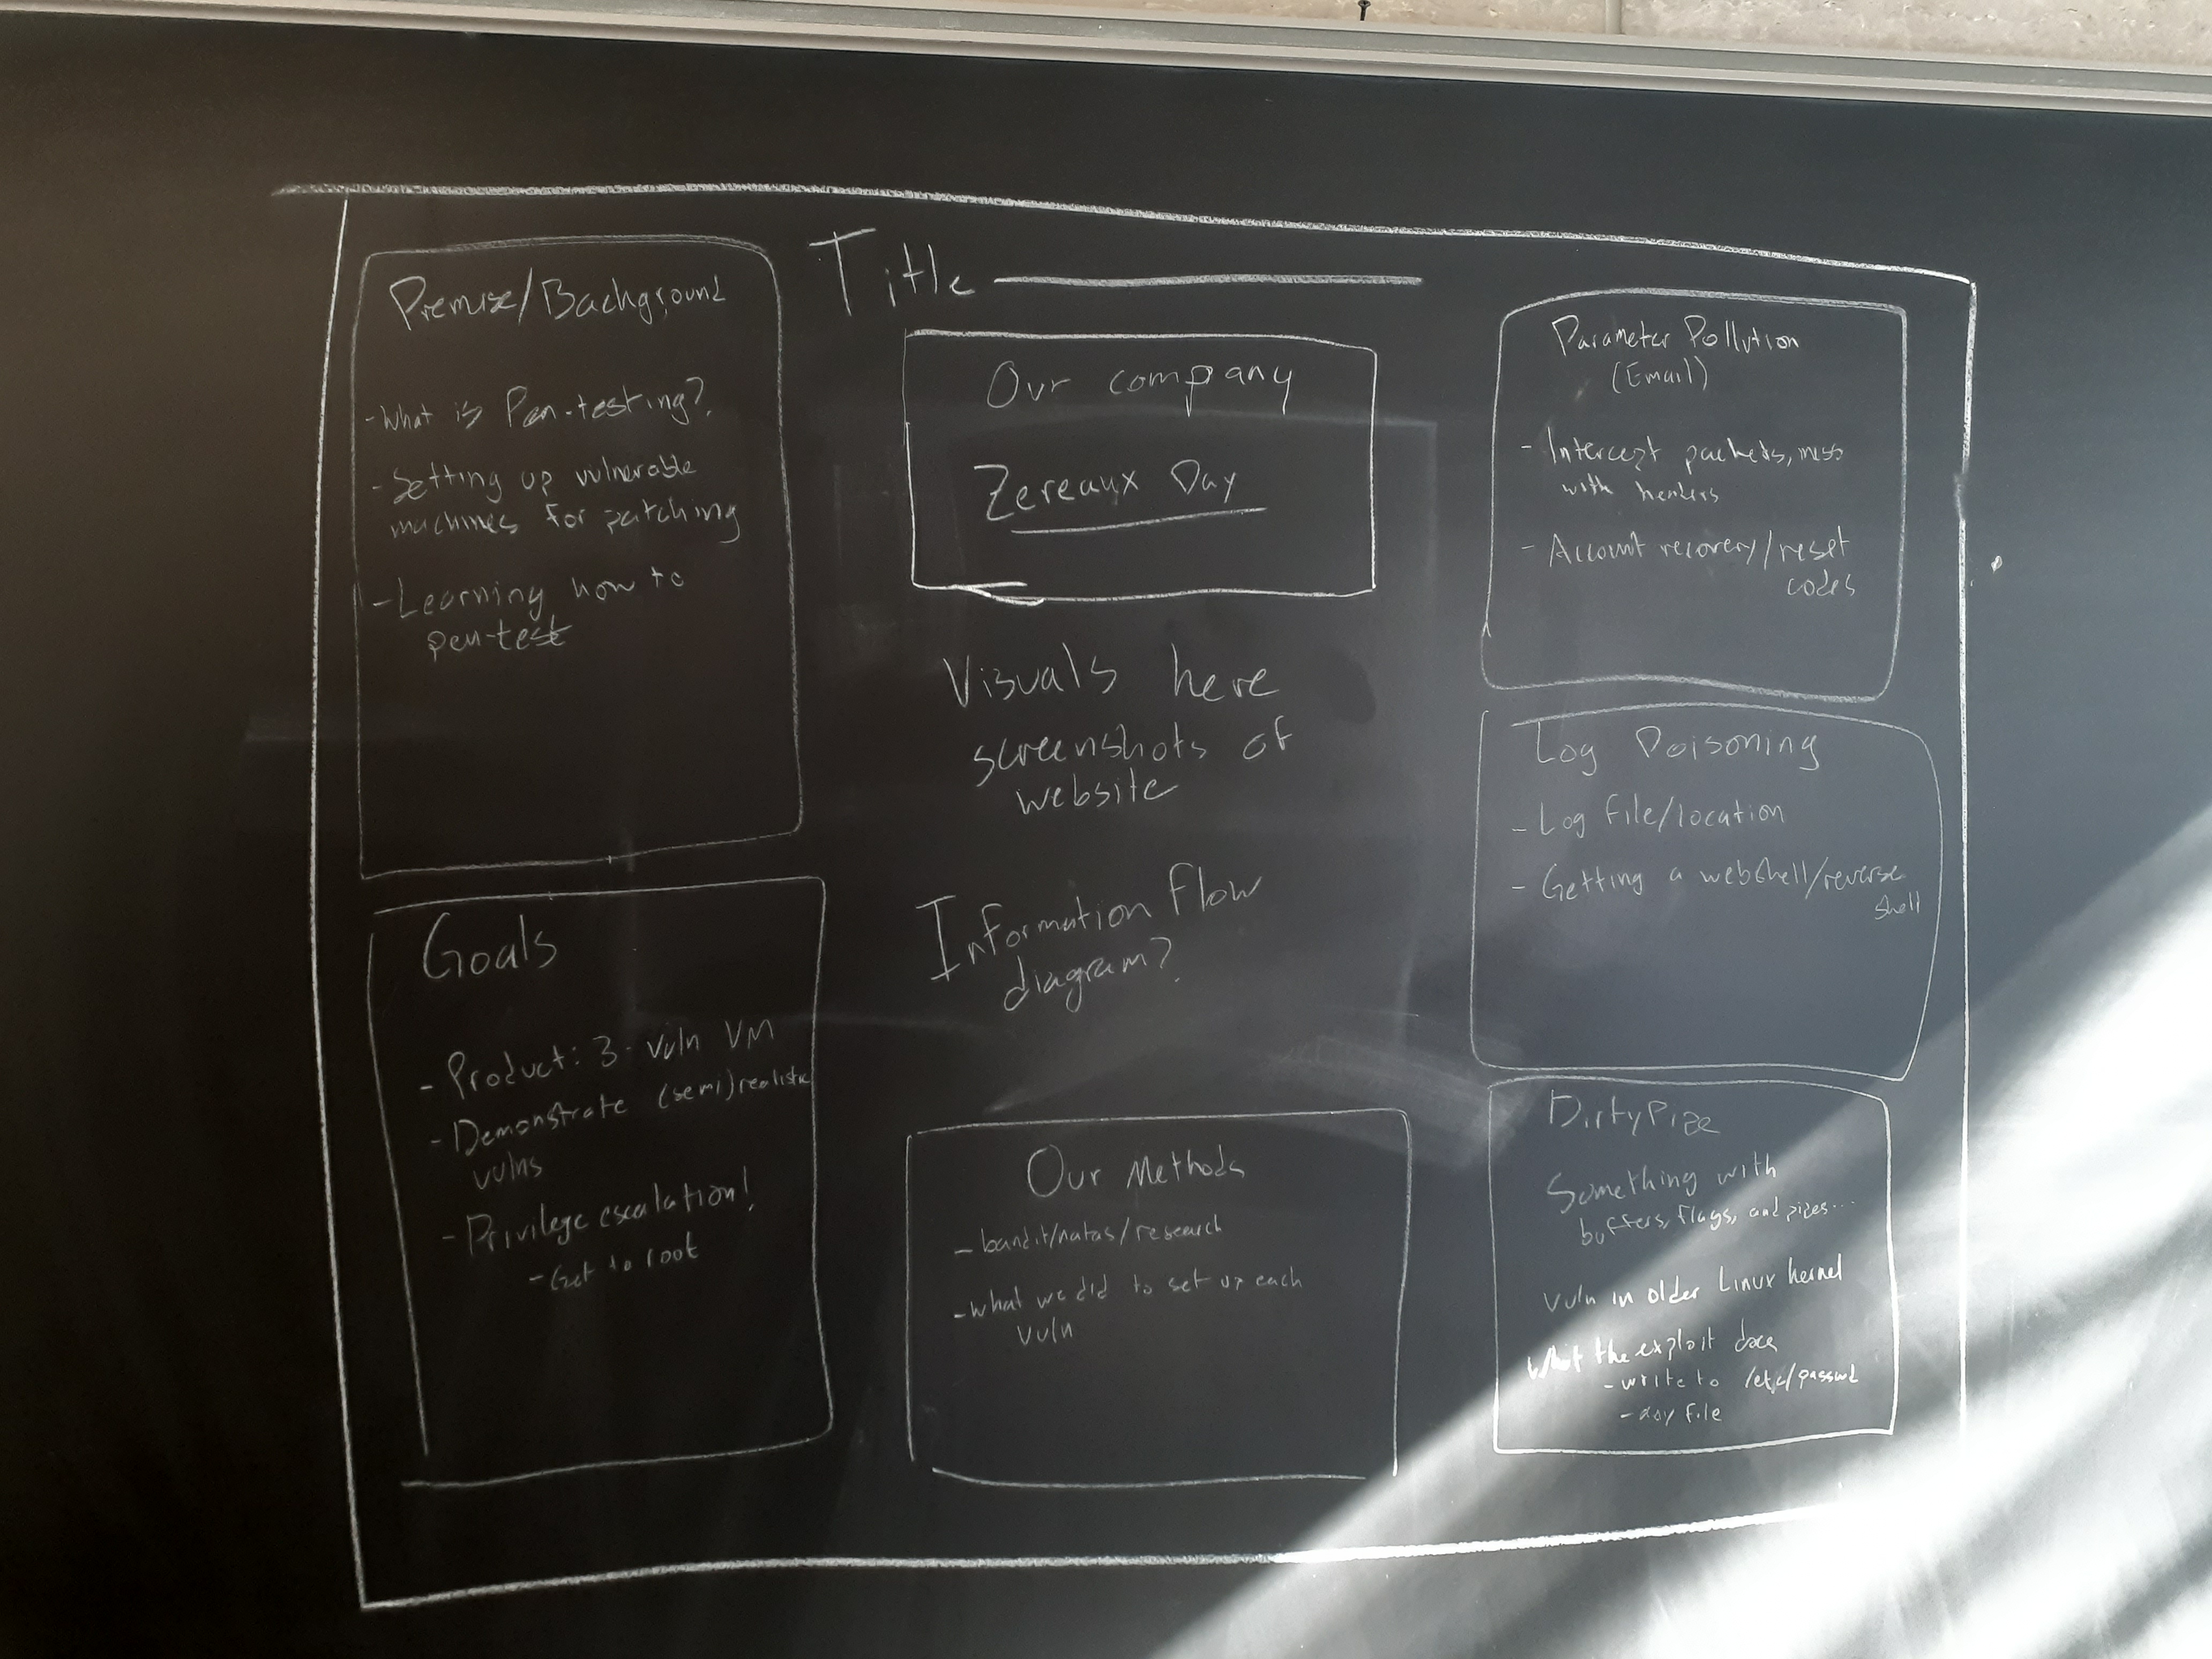 Title
Premise/Background
-What is Pen-testing?
-Setting up vulnerable
machines for patching
-Learning how to
pen-test
Goals
- Product: 3-vuln VM
- Demonstrate (semi)realistic
vulns
- Privilege escalation!
- Get to root
Our company
Zereaux Day
Visuals here
screenshots of
website
Information flow
diagram?
Our Methods
- bandit/natas/research
- what we did to set up each
vuln
Parameter Pollution
(Email)
- Intercept packets, mess
with headers
- Account recovery/reset
codes
Log Poisoning
- Log file/location
- Getting a webshell/reverse
shell
DirtyPipe
Something with
buffers, flags, and pipes...
vuln in older Linux kernel
What the exploit does
- write to /etc/passwd
- any file